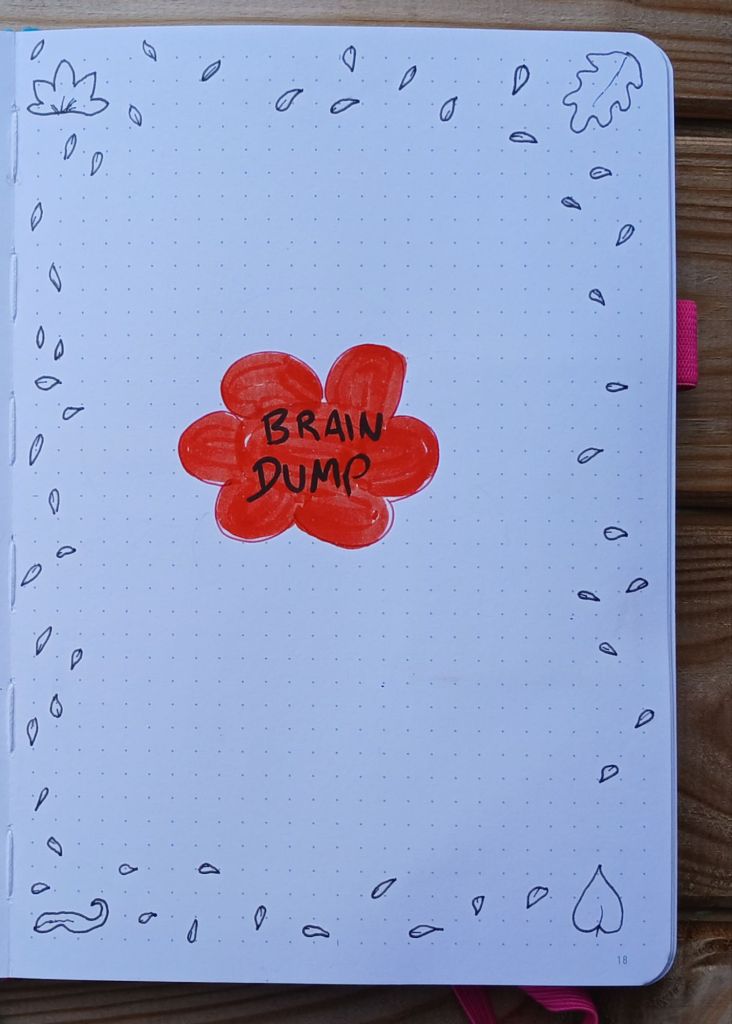 BRAIN
DUMP
18